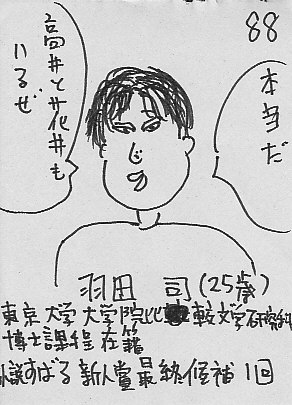 88
本当だ
高井と花井も
いるぜ
羽田 司(25歳)
東京大学大学院比較文学研究科
博士課程在籍
小説すばる新人賞最終候補1回